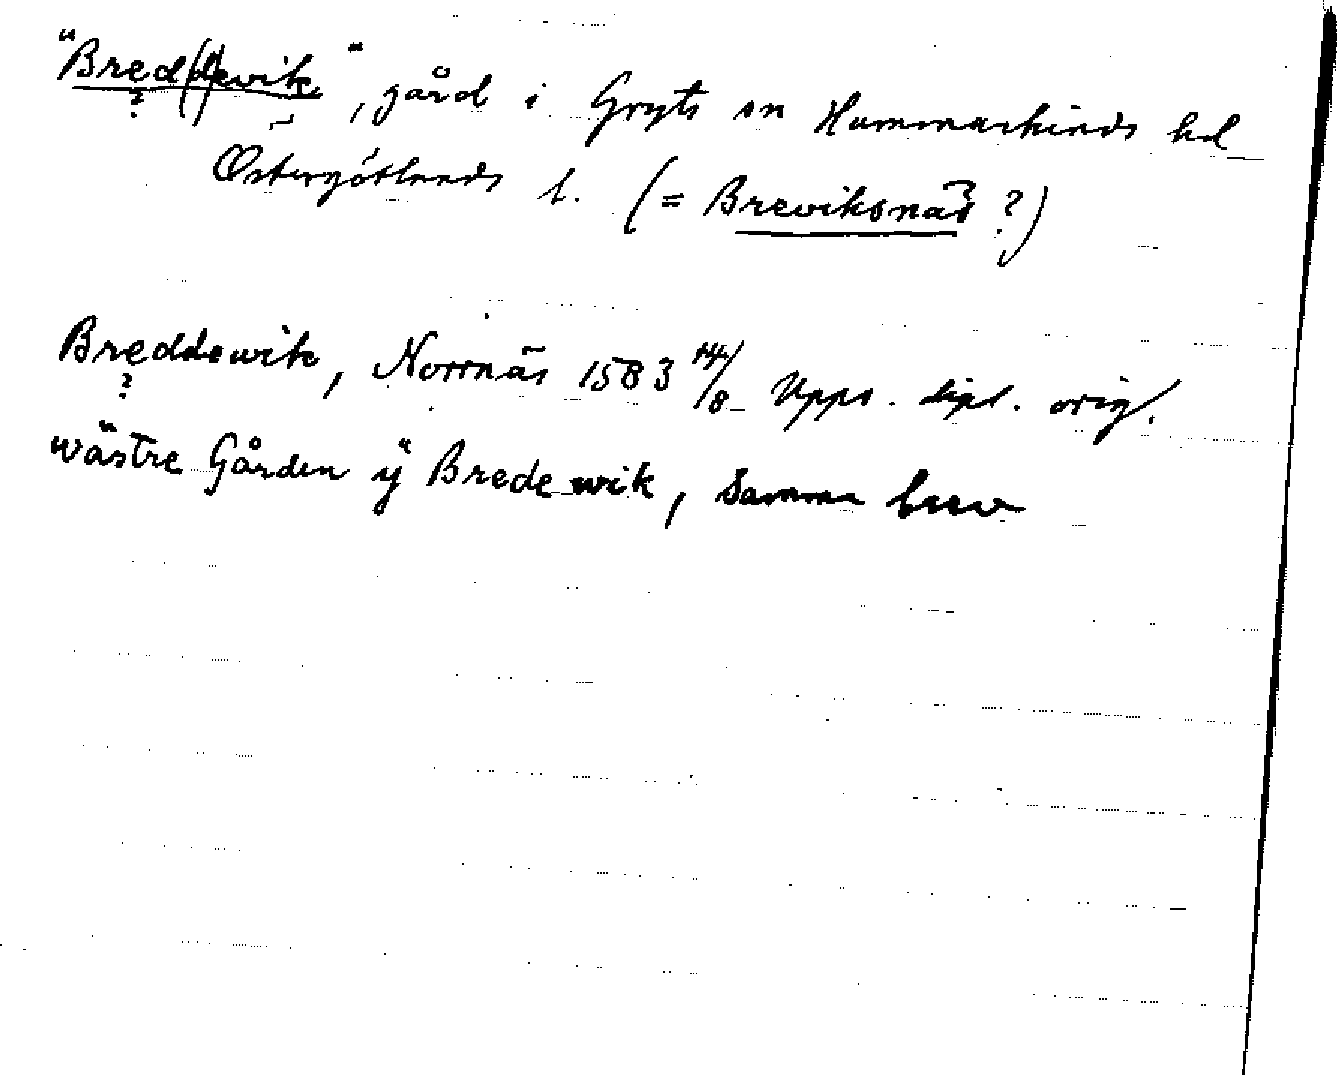 "Bred(d)evik", gård i Gryts sn Hammarkinds hd
?
Östergötlands l. (= Breviksnäs ?)
Breddewik, Norrnäs 1583 14/8 Upps. dipl. orig.
?
wästre Gården ÿ Bredewik, samma brev